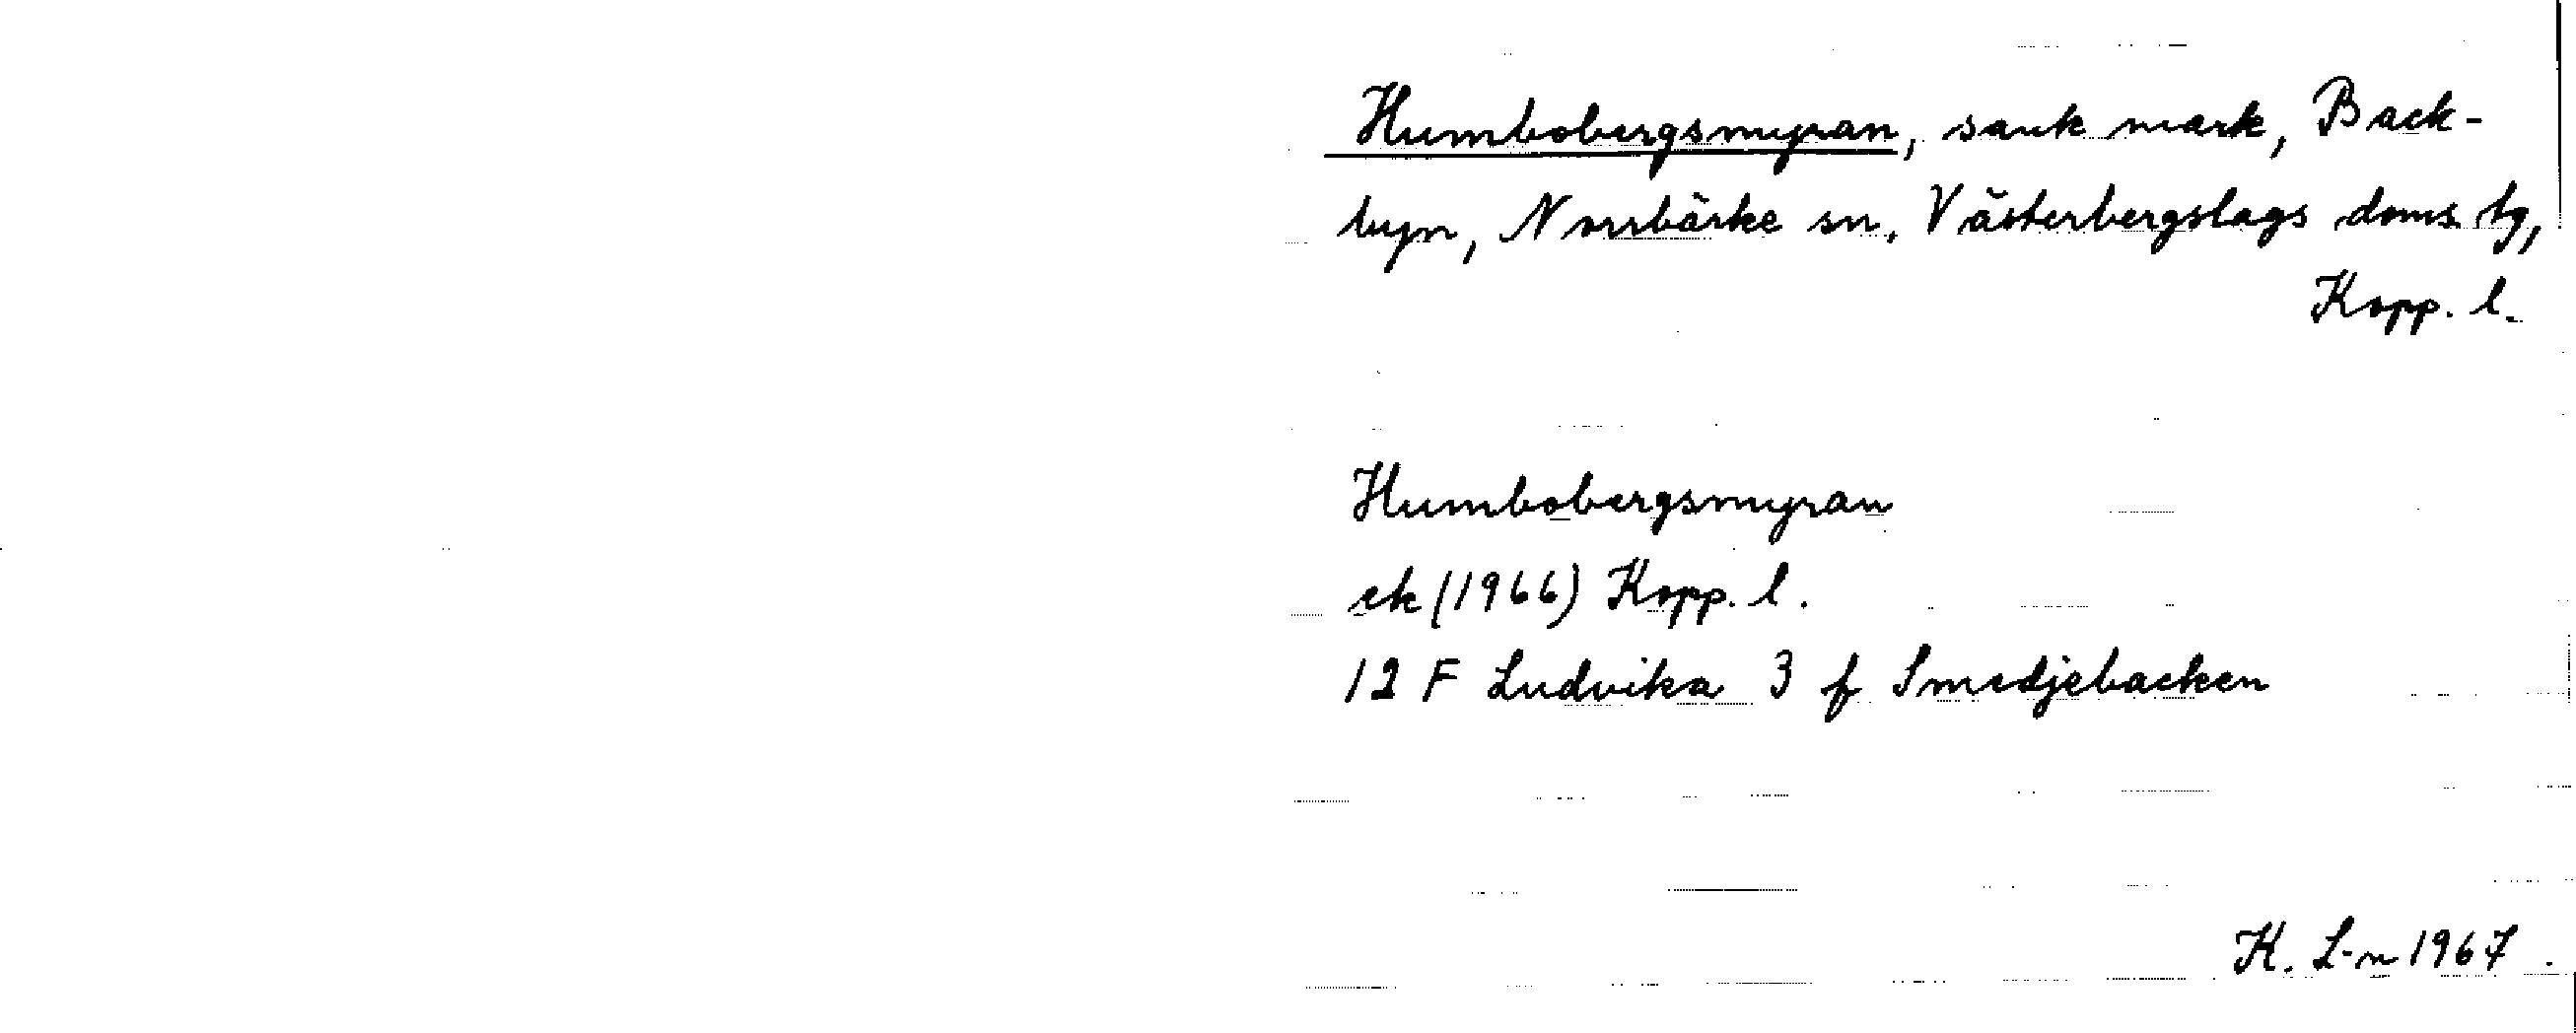 Humbobergsmyran, sank mark, Back-
byn, Norrbärke sn, Västerbergslags doms. tg,
Kopp. l.
Humbobergsmyran
ek (1966) Kopp. l.
12 F Ludvika 3 f Smedjebacken
K. L-n 1967